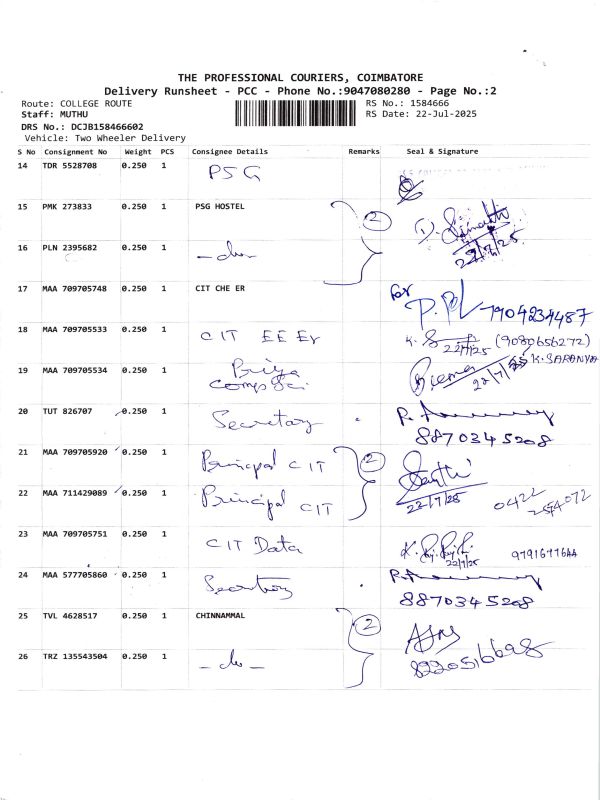 THE PROFESSIONAL COURIERS, COIMBATORE
Delivery Runsheet - PCC - Phone No.:9047080280 - Page No.:2
Route: COLLEGE ROUTE RS No.: 1584666
Staff: MUTHU RS Date: 22-Jul-2025
DRS No.: DCJB158466602
Vehicle: Two Wheeler Delivery
S No Consignment No Weight PCS Consignee Details Remarks Seal & Signature
14 TDR 5528708 0.250 1 PSG
15 PMK 273833 0.250 1 PSG HOSTEL 2 1)
16 PLN 2395682 0.250 1 - do - 22/7/25
17 MAA 709705748 0.250 1 CIT CHE ER for 7904234487
18 MAA 709705533 0.250 1 CIT EEE Er K. 22/7/25 (9080656272)
K. SARANYA
19 MAA 709705534 0.250 1 Priya 22/7/25
Comp Sci
20 TUT 826707 0.250 1 Secretary
8870345208
21 MAA 709705920 0.250 1 Principal CIT 2
22 MAA 711429089 0.250 1 Principal CIT 22/7/25 0422
2574072
23 MAA 709705751 0.250 1 CIT Data 22/7/25 9791677644
24 MAA 577705860 0.250 1 Secretary
8870345208
25 TVL 4628517 0.250 1 CHINNAMMAL 2
26 TRZ 135543504 0.250 1 - do - 8220516698